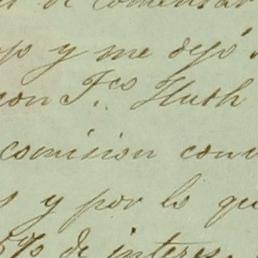 de comenzar
y me dejó
con F.co Huth
comision conv
s y por lo qu
5% de interes